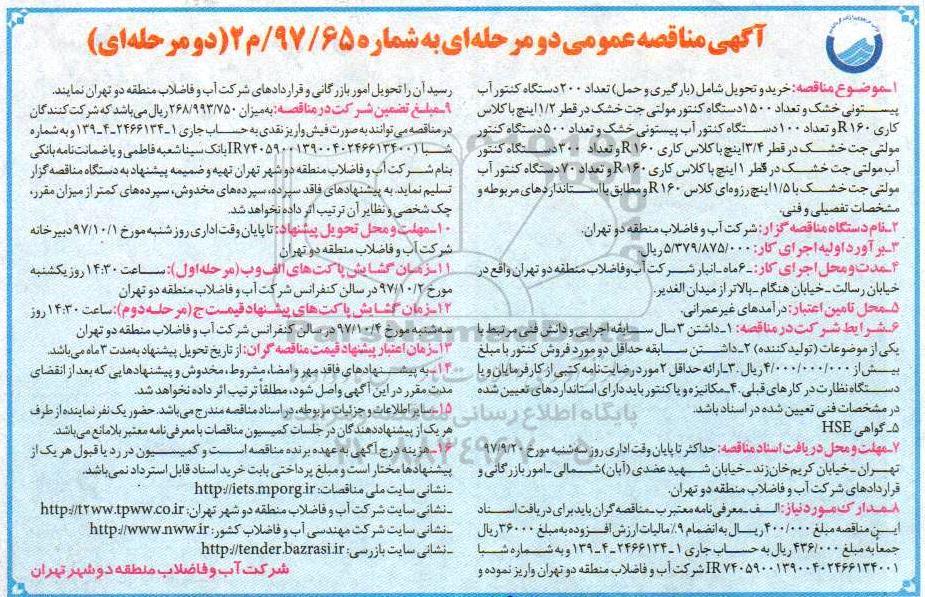 آگهی مناقصه عمومی دو مرحله‌ای به شماره ۹۷/۶۵/م۲ (دو مرحله‌ای)
۱ـ موضوع مناقصه: خرید و تحویل شامل (بارگیری و حمل) تعداد ۲۰۰ دستگاه کنتور آب
پیستونی خشک و تعداد ۱۵۰۰ دستگاه کنتور مولتی جت خشک در قطر ۱/۲ اینچ با کلاس
کاری R۱۶۰ و تعداد ۱۰۰ دستگاه کنتور آب پیستونی خشک و تعداد ۵۰۰ دستگاه کنتور
مولتی جت خشک در قطر ۳/۴ اینچ با کلاس کاری R۱۶۰ و تعداد ۳۰۰ دستگاه کنتور
آب مولتی جت خشک در قطر ۱ اینچ با کلاس کاری R۱۶۰ و تعداد ۷۰ دستگاه کنتور آب
مولتی جت خشک با ۱/۵ اینچ رزوه‌ای کلاس R۱۶۰ و مطابق با استانداردهای مربوطه و
مشخصات تفصیلی و فنی.
۲ـ نام دستگاه مناقصه گزار: شرکت آب و فاضلاب منطقه دو تهران.
۳ـ برآورد اولیه اجرای کار: ۵/۳۷۹/۸۷۵/۰۰۰ ریال
۴ـ مدت و محل اجرای کار: ـ ۶ ماه ـ انبار شرکت آب و فاضلاب منطقه دو تهران واقع در
خیابان رسالت ـ خیابان هنگام ـ بالاتر از میدان الغدیر.
۵ـ محل تامین اعتبار: درآمدهای غیرعمرانی.
۶ـ شرایط شرکت در مناقصه: ۱ـ داشتن ۳ سال سابقه اجرایی و دانش فنی مرتبط با
یکی از موضوعات (تولید کننده) ۲ـ داشتن سابقه حداقل دو مورد فروش کنتور با مبلغ
بیش از ۴/۰۰۰/۰۰۰/۰۰۰ ریال. ۳ـ ارائه حداقل ۲ مورد رضایت نامه کتبی از کارفرمایان و یا
دستگاه نظارت در کارهای قبلی. ۴ـ مکانیزه و یا کنتور باید دارای استانداردهای تعیین شده
در مشخصات فنی تعیین شده در اسناد باشد.
۵ـ گواهی HSE
۷ـ مهلت و محل دریافت اسناد مناقصه: حداکثر تا پایان وقت اداری روز سه شنبه مورخ ۹۷/۹/۲۰
تهران ـ خیابان کریم خان زند ـ خیابان شهید عضدی (آبان) شمالی ـ امور بازرگانی و
قراردادهای شرکت آب و فاضلاب منطقه دو تهران.
۸ـ مدارک مورد نیاز: الف ـ معرفی نامه معتبر ب ـ مناقصه گران باید برای دریافت اسناد
این مناقصه مبلغ ۴۰۰/۰۰۰ ریال به انضمام ۹٪ مالیات ارزش افزوده به مبلغ ۳۶۰۰۰ ریال
جمعاً به مبلغ ۴۳۶/۰۰۰ ریال به حساب جاری ۱ـ۲۴۶۶۱۳۴ـ۴ـ۱۳۹ و به شماره شبا
IR۷۴۰۵۹۰۰۱۳۹۰۰۴۰۲۴۶۶۱۳۴۰۰۱ شرکت آب و فاضلاب منطقه دو تهران واریز نموده و
رسید آن را تحویل امور بازرگانی و قراردادهای شرکت آب و فاضلاب منطقه دو تهران نمایند.
۹ـ مبلغ تضمین شرکت در مناقصه: به میزان ۲۶۸/۹۹۳/۷۵۰ ریال می‌باشد که شرکت کنندگان
در مناقصه می‌توانند به صورت فیش واریز نقدی به حساب جاری ۱ـ۲۴۶۶۱۳۴ـ۴ـ۱۳۹ و به شماره
شبا IR۷۴۰۵۹۰۰۱۳۹۰۰۴۰۲۴۶۶۱۳۴۰۰۱ بانک سینا شعبه فاطمی و یا ضمانت نامه بانکی
بنام شرکت آب و فاضلاب منطقه دو شهر تهران تهیه و ضمیمه پیشنهاد به دستگاه مناقصه گزار
تسلیم نماید. به پیشنهادهای فاقد سپرده، سپرده‌های مخدوش، سپرده‌های کمتر از میزان مقرر،
چک شخصی و نظایر آن ترتیب اثر داده نخواهد شد.
۱۰ـ مهلت و محل تحویل پیشنهاد: تا پایان وقت اداری روز شنبه مورخ ۹۷/۱۰/۱ دبیرخانه
شرکت آب و فاضلاب منطقه دو تهران
۱۱ـ زمان گشایش پاکت‌های الف و ب (مرحله اول): ساعت ۱۴:۳۰ روز یکشنبه
مورخ ۹۷/۱۰/۲ در سالن کنفرانس شرکت آب و فاضلاب منطقه دو تهران
۱۲ـ زمان گشایش پاکت‌های پیشنهاد قیمت ج (مرحله دوم): ساعت ۱۴:۳۰ روز
سه شنبه مورخ ۹۷/۱۰/۴ در سالن کنفرانس شرکت آب و فاضلاب منطقه دو تهران
۱۳ـ زمان اعتبار پیشنهاد قیمت مناقصه گران: از تاریخ تحویل پیشنهاد به مدت ۳ ماه می‌باشد.
۱۴ـ به پیشنهادهای فاقد مهر و امضا، مشروط، مخدوش و پیشنهادهایی که بعد از انقضای
مدت مقرر در این آگهی واصل شود، مطلقاً ترتیب اثر داده نخواهد شد.
۱۵ـ سایر اطلاعات و جزئیات مربوطه، در اسناد مناقصه مندرج می‌باشد. حضور یک نفر نماینده از طرف
هر یک از پیشنهاددهندگان در جلسات کمیسیون مناقصات با معرفی نامه معتبر بلامانع می‌باشد.
۱۶ـ هزینه درج آگهی به عهده برنده مناقصه است و کمیسیون در رد یا قبول هر یک از
پیشنهادها مختار است و مبلغ پرداختی بابت خرید اسناد قابل استرداد نمی‌باشد.
ـ نشانی سایت ملی مناقصات: http://iets.mporg.ir
ـ نشانی سایت شرکت آب و فاضلاب منطقه دو شهر تهران: http://t۲ww.tpww.co.ir
ـ نشانی سایت شرکت مهندسی آب و فاضلاب کشور: http://www.nww.ir
ـ نشانی سایت بازرسی: http://tender.bazrasi.ir
شرکت آب و فاضلاب منطقه دو شهر تهران